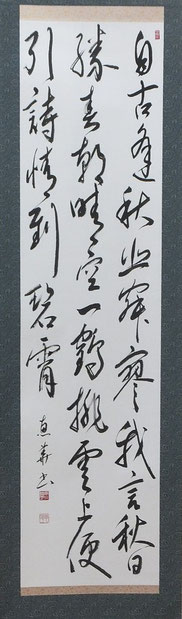 自古逢秋悲寂寥我言秋日
勝春朝晴空一鶴排雲上便
引詩情到碧霄 恵華書